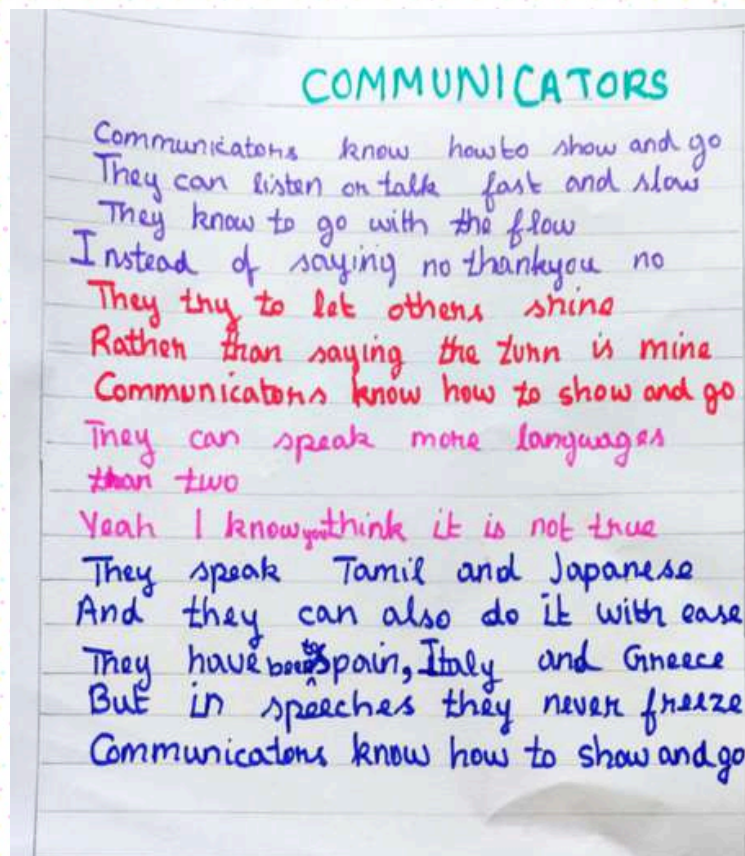 COMMUNICATORS
Communicators know how to show and go
They can listen or talk fast and slow
They know to go with the flow
Instead of saying no thankyou no
They try to let others shine
Rather than saying the turn is mine
Communicators know how to show and go
They can speak more languages
than two
Yeah I know you think it is not true
They speak Tamil and Japanese
And they can also do it with ease
They have been to Spain, Italy and Greece
But in speeches they never freeze
Communicators know how to show and go